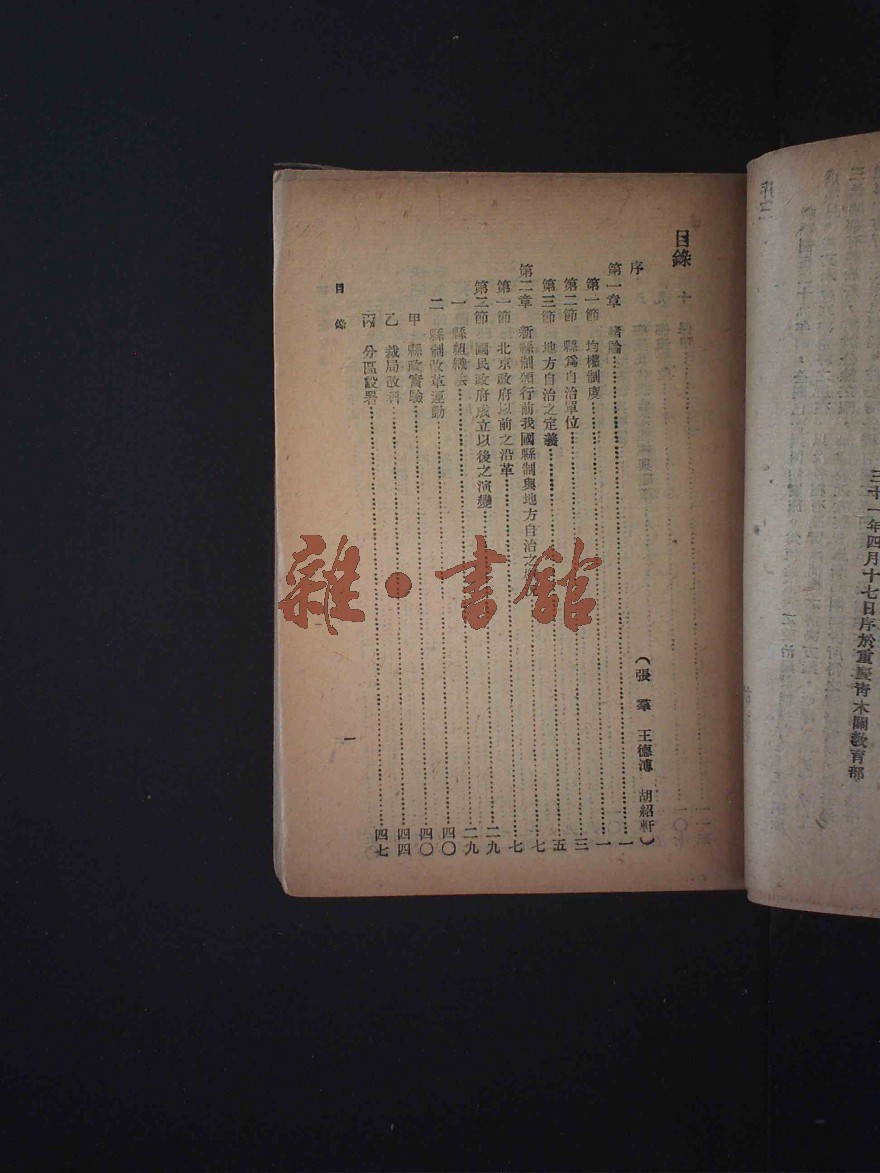 三十一年四月十七日序於重慶青木關教育部
目錄
序（張羣 王德溥 胡紹軒）
第一章 緒論……一
第一節 均權制度……一
第二節 縣爲自治單位……三
第三節 地方自治之定義……五
第二章 新縣制頒行前我國縣制與地方自治之……七
第一節 北京政府以前之沿革……七
第二節 國民政府成立以後之演變……二九
一 縣組織法……二九
二 縣制改革運動……四〇
甲 縣政實驗……四〇
乙 裁局改科……四四
丙 分區設署……四七
目錄
一
雜·書館